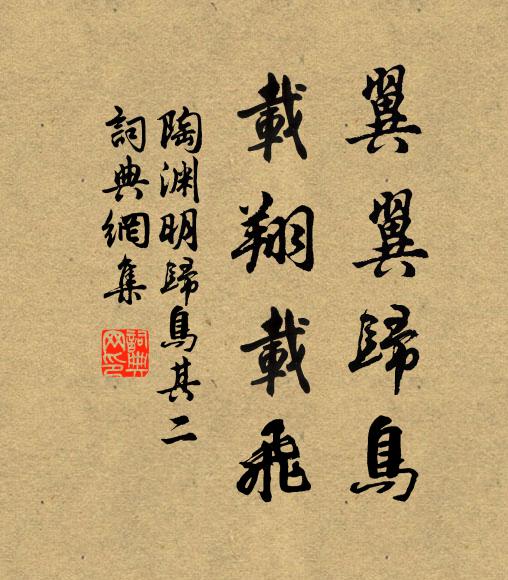 翼翼歸鳥
載翔載飛
陶渊明歸鳥其二
詞典網集
詞典
网印